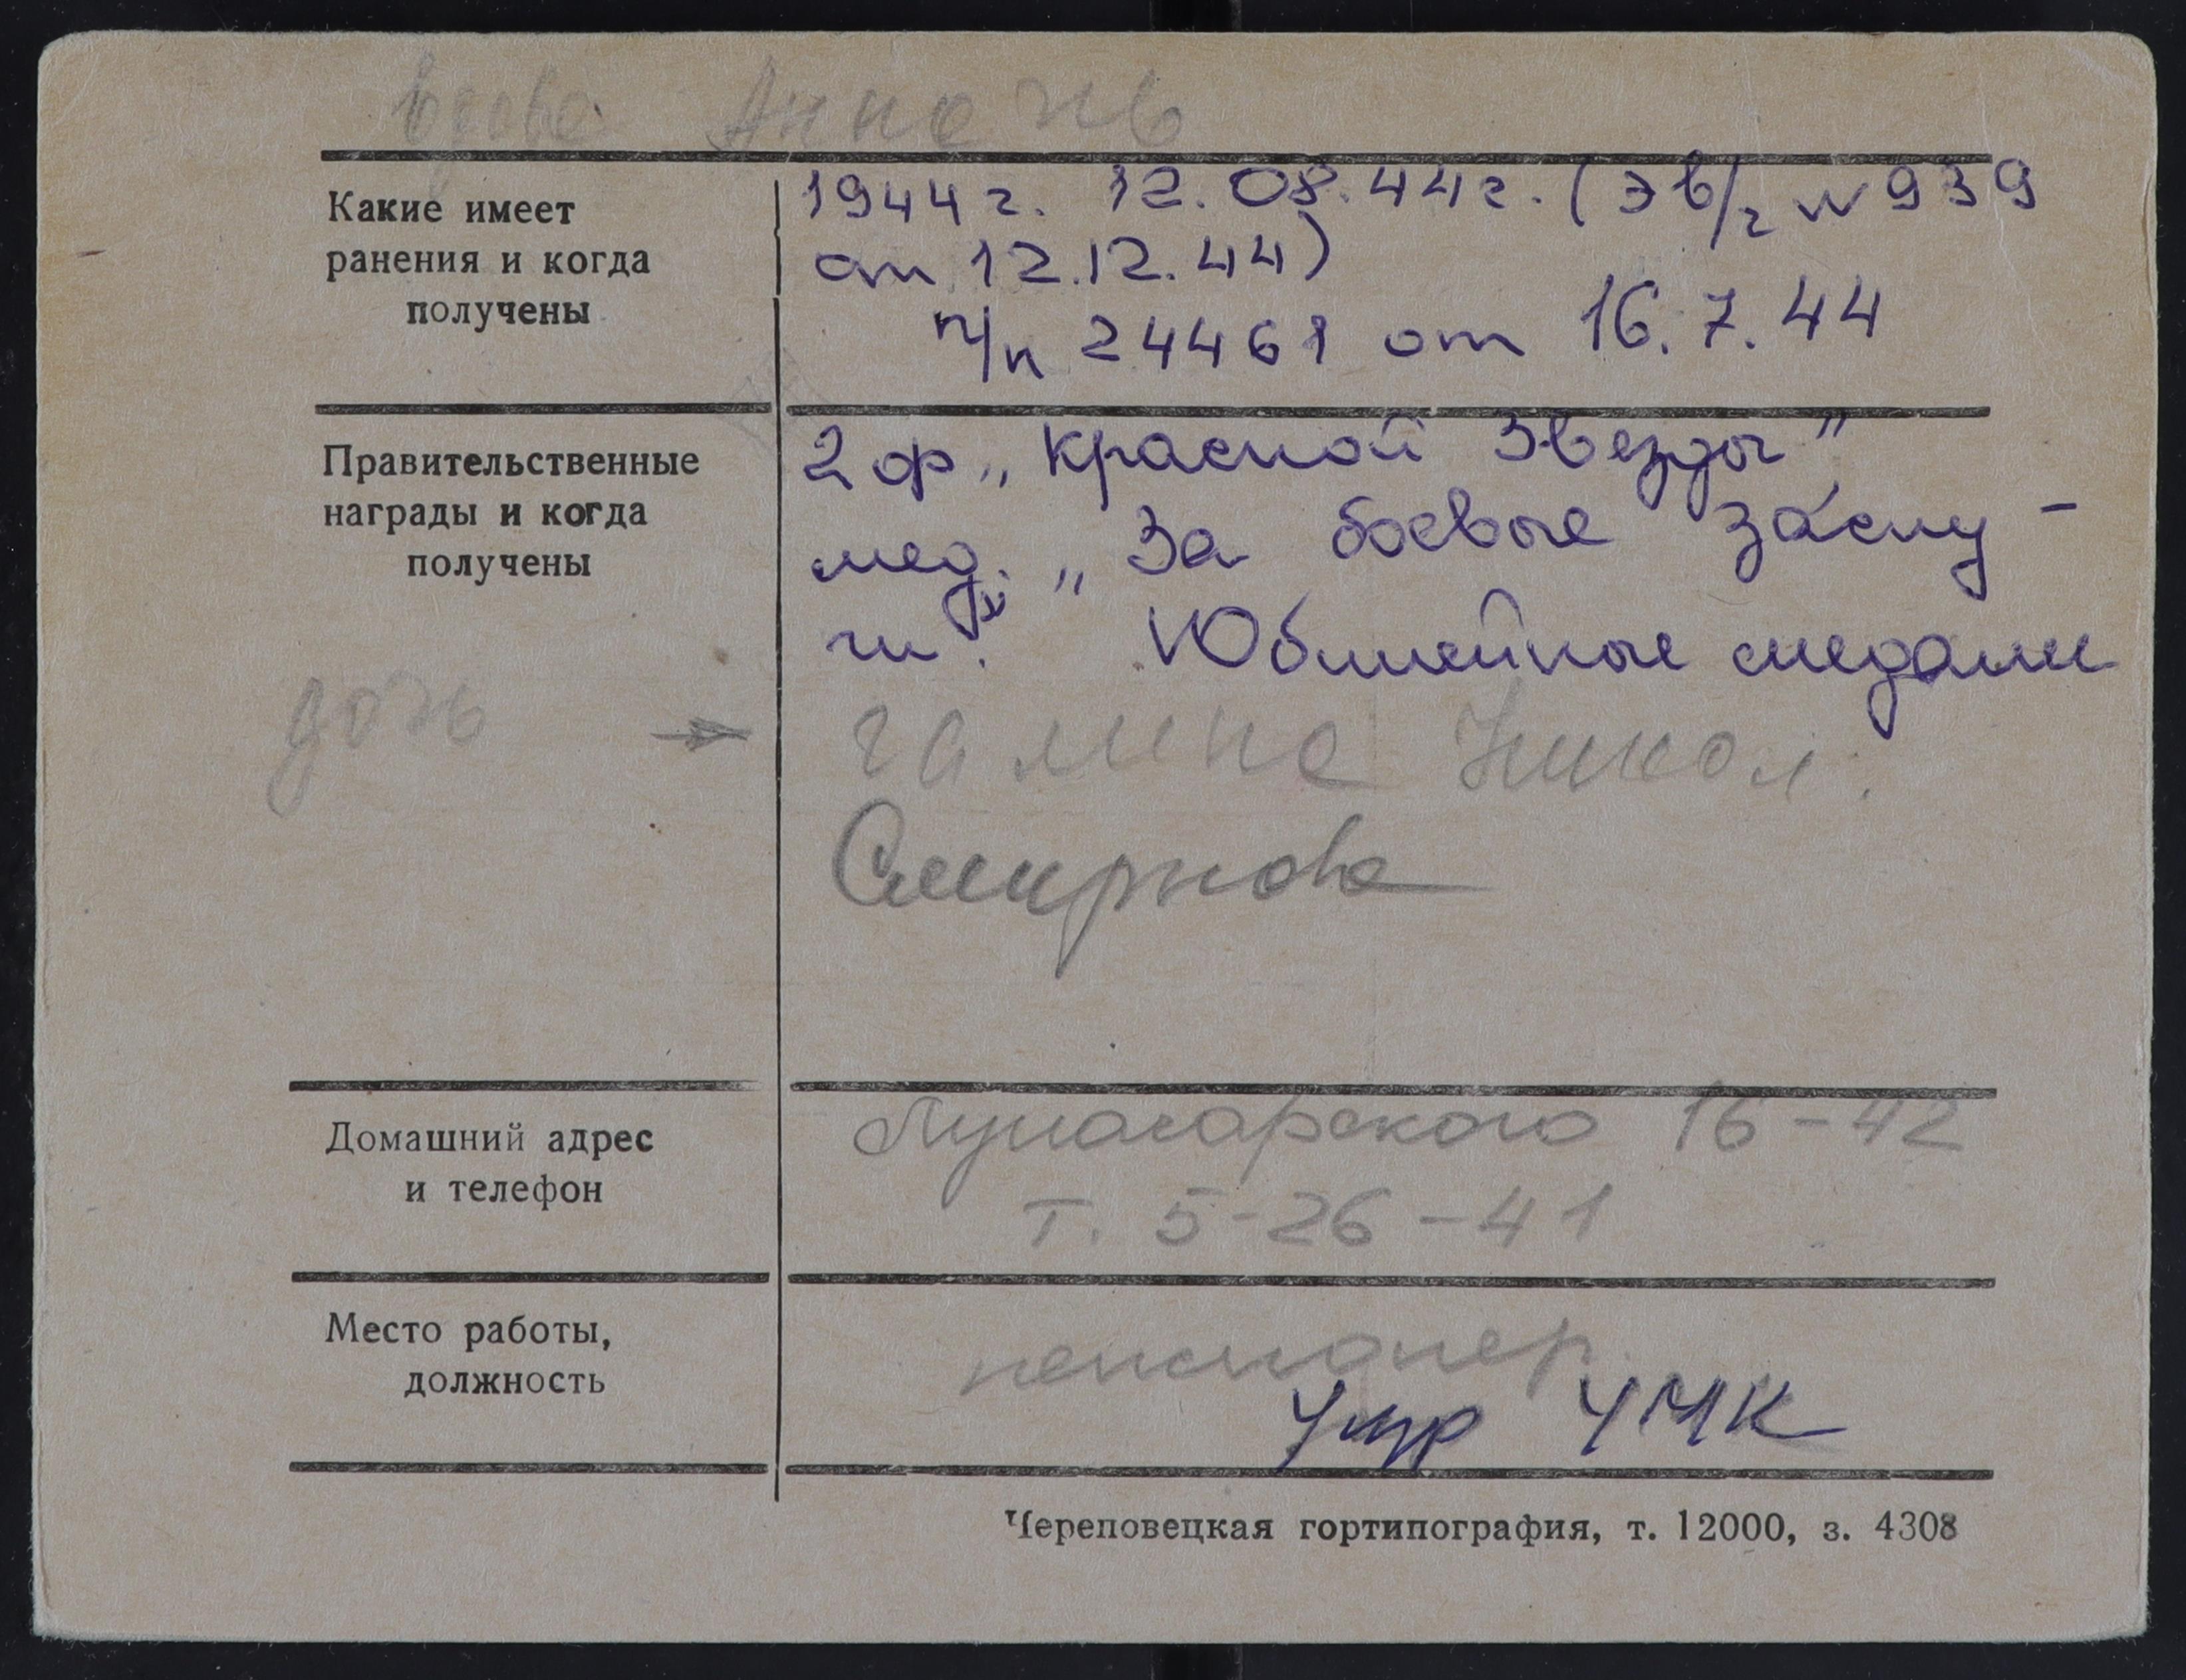 вдова Анна
Какие имеет
ранения и когда
получены
1944 г. 12.08.44 г. (эв/г № 939
от 12.12.44)
п/п 24461 от 16.7.44
Правительственные
награды и когда
получены
2 ор „Красной Звезды"
мед. „За боевые заслу-
ги". Юбилейные медали
дочь → Галина Никол.
Смирнова
Домашний адрес
и телефон
Луначарского 16-42
т. 5-26-41
Место работы,
должность
пенсионер
ЧМК
Череповецкая гортипография, т. 12000, з. 4308